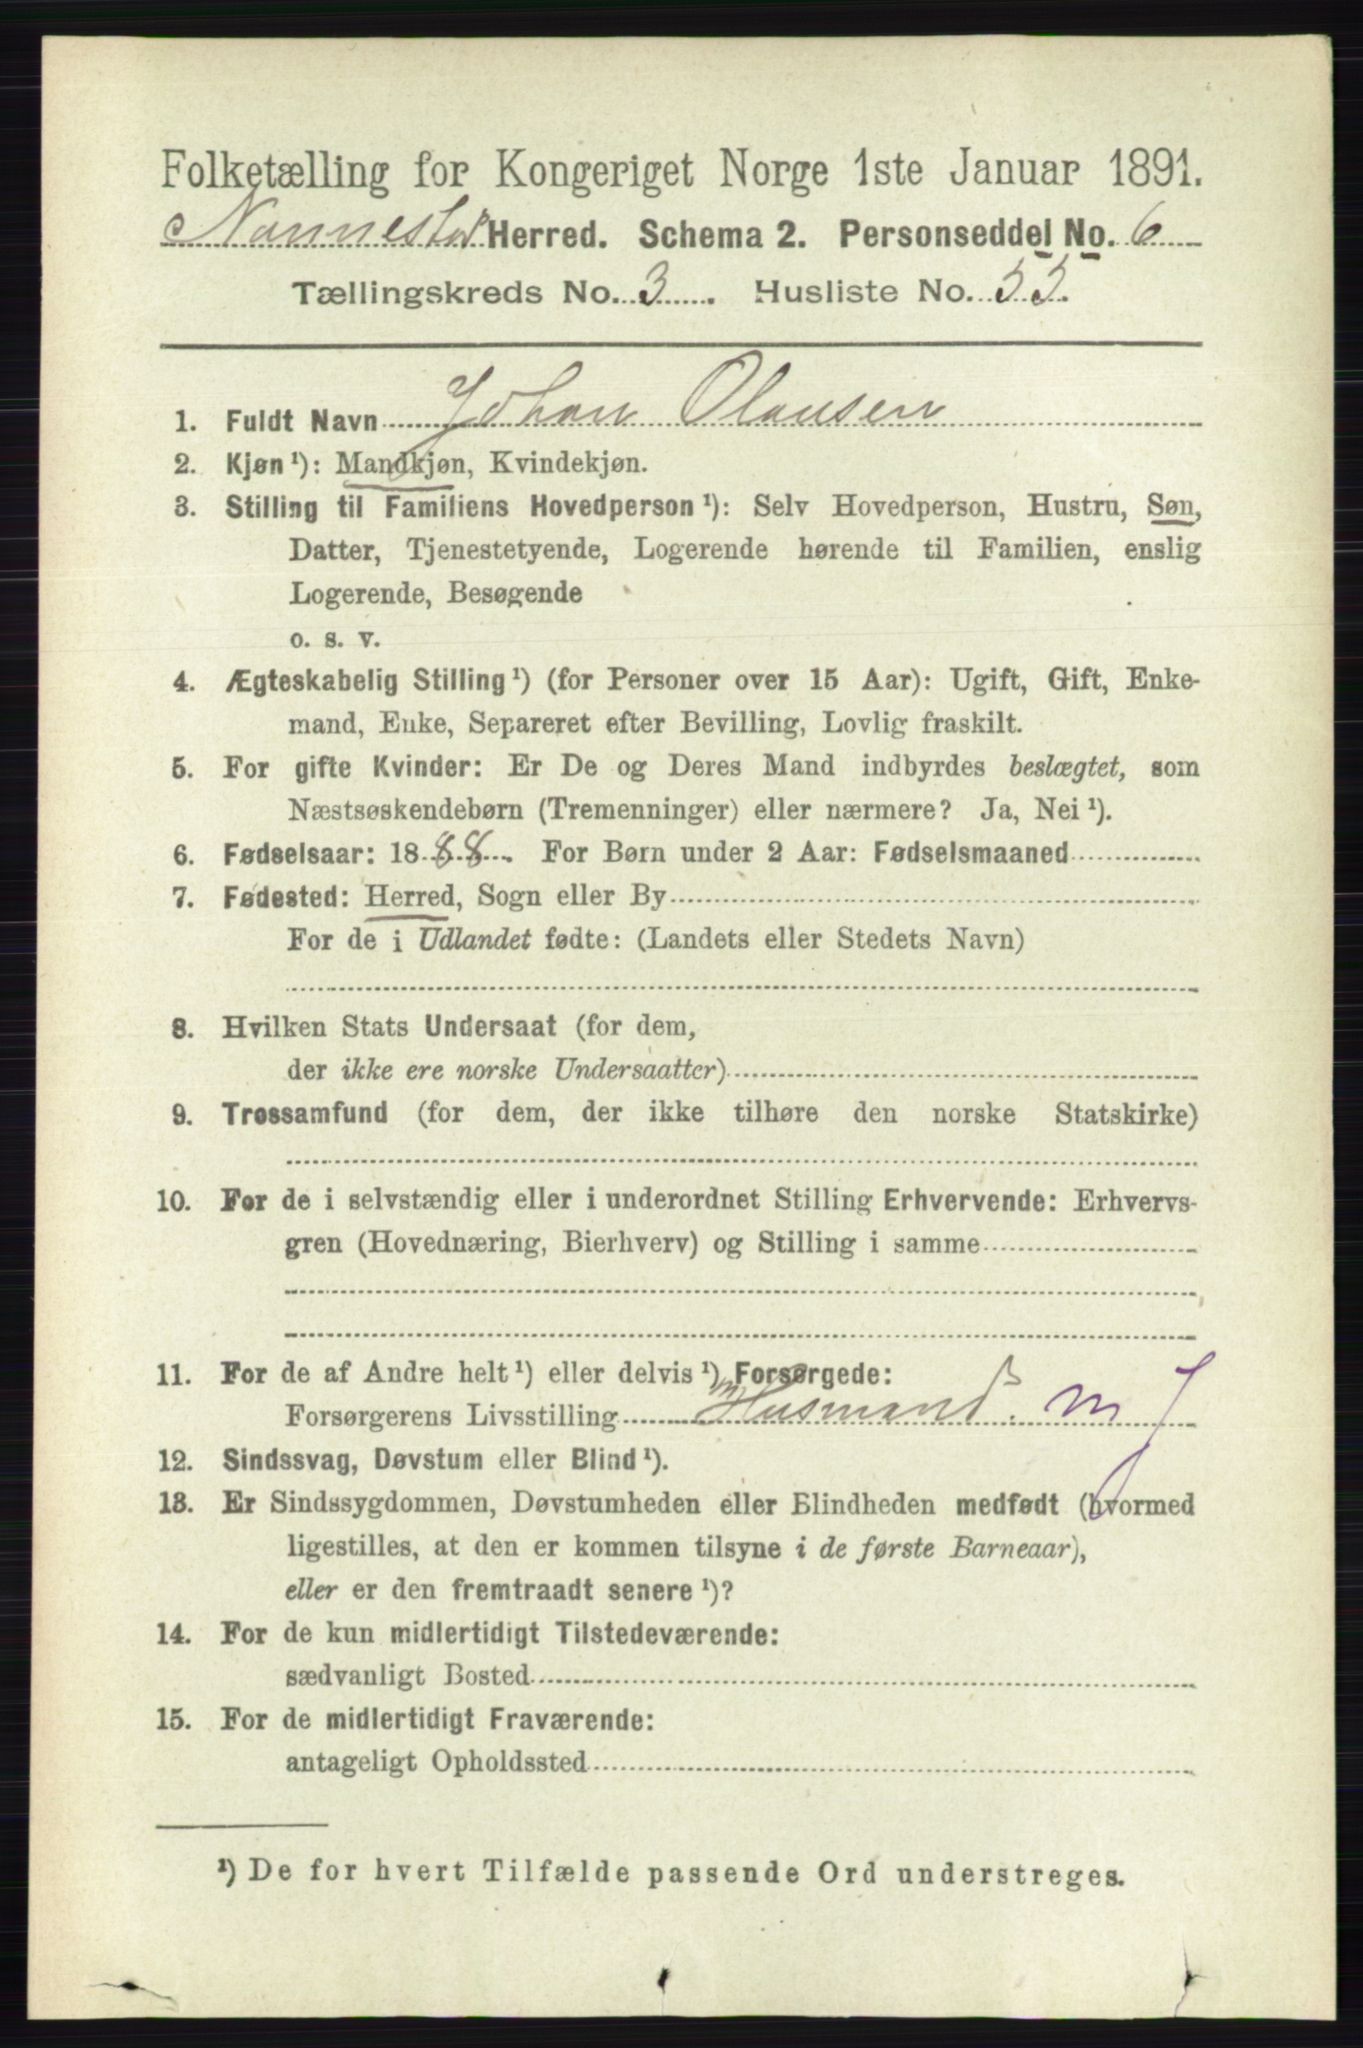 Folketælling for Kongeriget Norge 1ste Januar 1891.
Nannestad Herred. Schema 2. Personseddel No. 6
Tællingskreds No. 3. Husliste No. 55.
1. Fuldt Navn Johan Olausen
2. Kjøn ¹): Mandkjøn, Kvindekjøn.
3. Stilling til Familiens Hovedperson ¹): Selv Hovedperson, Hustru, Søn,
Datter, Tjenestetyende, Logerende hørende til Familien, enslig
Logerende, Besøgende
o. s. v.
4. Ægteskabelig Stilling ¹) (for Personer over 15 Aar): Ugift, Gift, Enke-
mand, Enke, Separeret efter Bevilling, Lovlig fraskilt.
5. For gifte Kvinder: Er De og Deres Mand indbyrdes beslægtet, som
Næstsøskendebørn (Tremenninger) eller nærmere? Ja, Nei ¹).
6. Fødselsaar: 1888. For Børn under 2 Aar: Fødselsmaaned
7. Fødested: Herred, Sogn eller By
For de i Udlandet fødte: (Landets eller Stedets Navn)
8. Hvilken Stats Undersaat (for dem,
der ikke ere norske Undersaatter)
9. Trossamfund (for dem, der ikke tilhøre den norske Statskirke)
10. For de i selvstændig eller i underordnet Stilling Erhvervende: Erhvervs-
gren (Hovednæring, Bierhverv) og Stilling i samme
11. For de af Andre helt ¹) eller delvis ¹) Forsørgede:
Forsørgerens Livsstilling Husmand. m J
12. Sindssvag, Døvstum eller Blind ¹).
13. Er Sindssygdommen, Døvstumheden eller Blindheden medfødt (hvormed
ligestilles, at den er kommen tilsyne i de første Barneaar),
eller er den fremtraadt senere ¹)?
14. For de kun midlertidigt Tilstedeværende:
sædvanligt Bosted
15. For de midlertidigt Fraværende:
antageligt Opholdssted
¹) De for hvert Tilfælde passende Ord understreges.